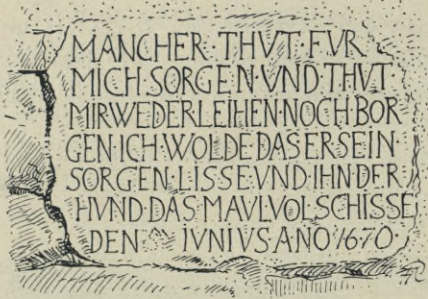 MANCHER·THVT·FVR
MICH·SORGEN·VND·THVT
MIR WEDER LEIHEN·NOCH BOR-
GEN·ICH·WOLDE DAS ER SEIN·
SORGEN·LISSE VND IHN DER
HVND DAS MAVL VOL SCHISSE
DEN IVNIVS·ANO·1670·